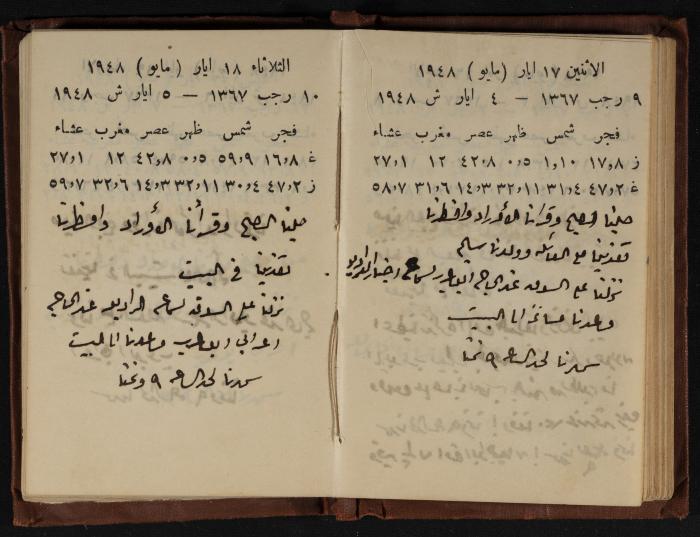 الاثنين ١٧ ايار (مايو) ١٩٤٨
٩ رجب ١٣٦٧ — ٤ ايار ش ١٩٤٨
فجر شمس ظهر عصر مغرب عشاء
ز ١٧٫٨ ١٫١٠ ٠٫٥ ٤٢٫٨ ١٢ ٢٧٫١
غ ٤٧٫٢ ٣١٫٤ ٣٢٫١١ ١٤٫٣ ٣١٫٦ ٥٨٫٧
صلينا الصبح وقرأنا الأوراد وافطرنا
تغدينا مع العائلة وولدنا سليم
نزلنا على السوق عند الحاج لسماع اخبار الراديو
وعدنا مساءً الى البيت
سهرنا لحد الساعة ٩ ونمنا
الثلاثاء ١٨ ايار (مايو) ١٩٤٨
١٠ رجب ١٣٦٧ — ٥ ايار ش ١٩٤٨
فجر شمس ظهر عصر مغرب عشاء
غ ١٦٫٨ ٥٩٫٩ ٠٫٥ ٤٢٫٨ ١٢ ٢٧٫١
ز ٤٧٫٢ ٣٠٫٤ ٣٢٫١١ ١٤٫٣ ٣٢٫٦ ٥٩٫٧
صلينا الصبح وقرأنا الأوراد وافطرنا
تغدينا في البيت
نزلنا على السوق لسماعة الراديو عند الحاج
وعدنا الى البيت
سهرنا لحد الساعة ٩ ونمنا